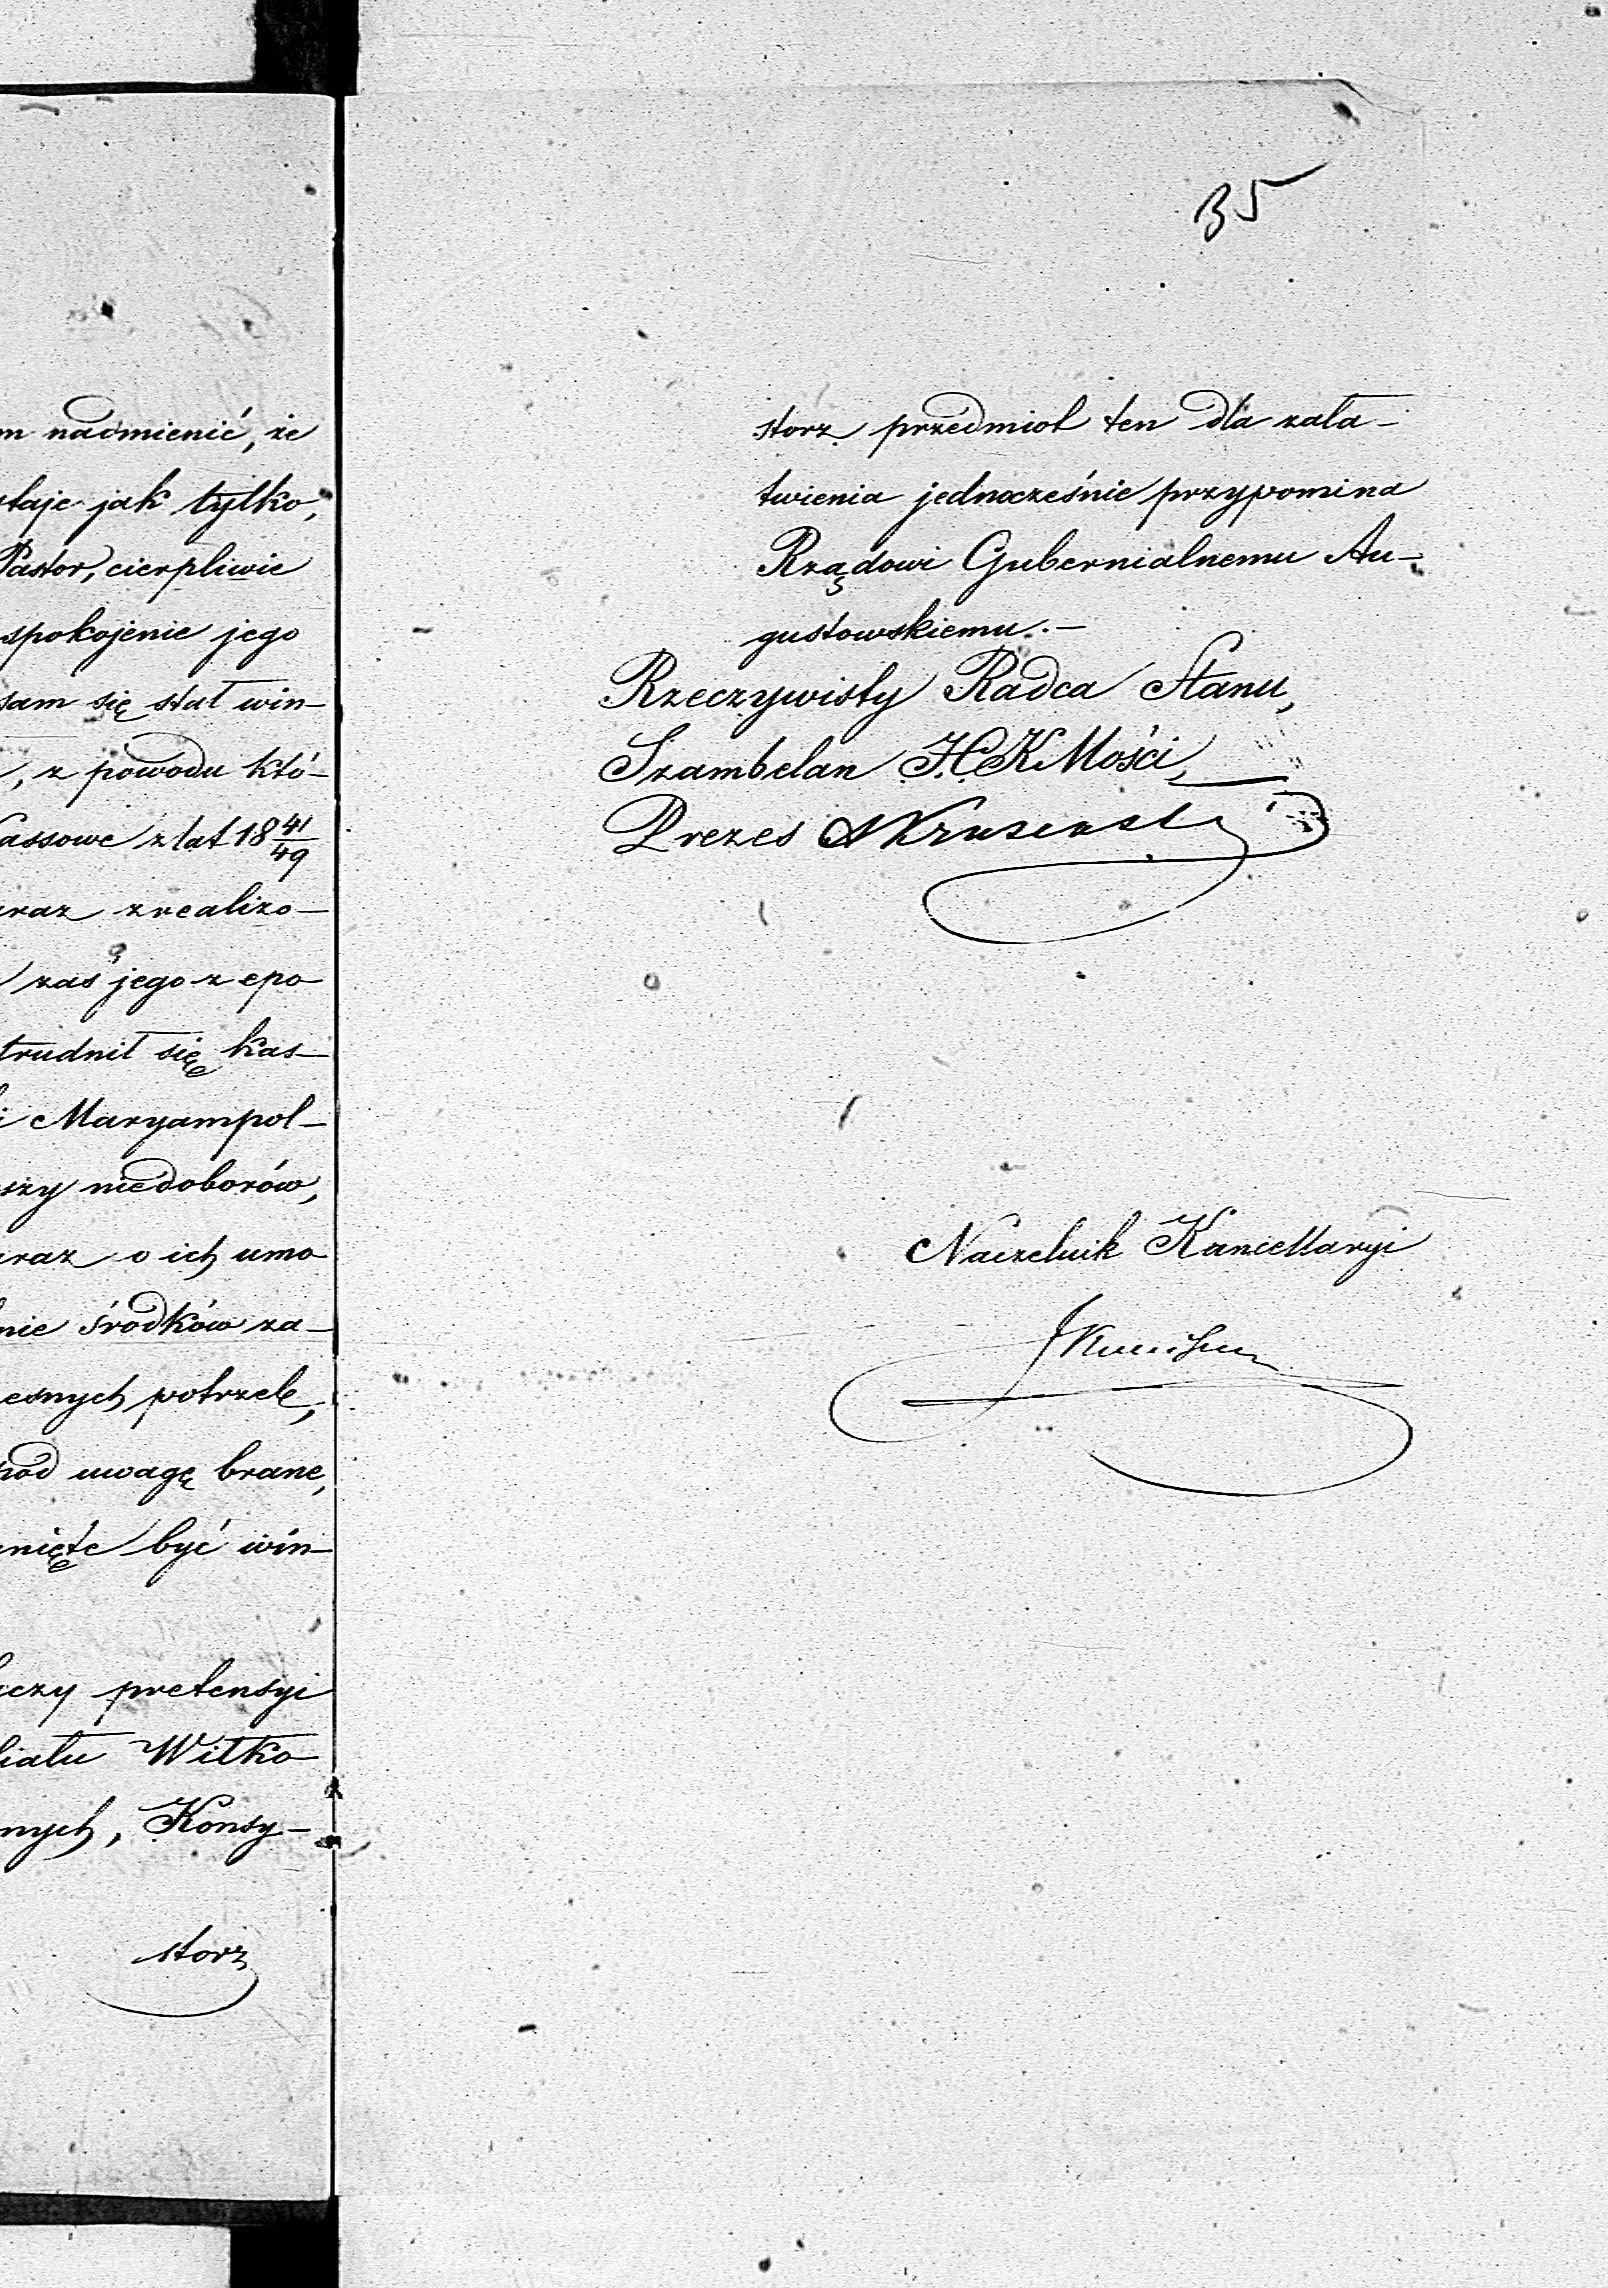 m nadmienić, że
staje jak tylko,
Pastor, cierpliwie
spokojenie jego
sam się stał win-
, z powodu któ-
assowe z lat 18 41/49
raz zrealizo-
zaś jego z epo-
trudnił się kas-
i Maryampol-
szy niedoborów,
raz o ich umo
nie środków za-
esnych potrzeb,
pod uwagę brane,
nięte być win-
czy pretensyi
iału Wiłko
nych, Konsy-
storz
35
storz przedmiot ten dla zała-
twienia jednocześnie przypomina
Rządowi Gubernialnemu Au-
gustowskiemu.-
Rzeczywisty Radca Stanu,
Szambelan J.C.K Mości,
Prezes
Naczelnik Kancellaryi